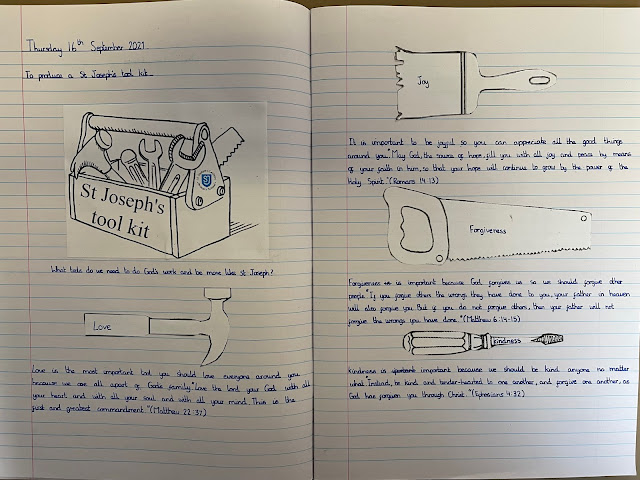 Thursday 16th September 2021
To produce a St Joseph's tool kit.
St Joseph's
tool kit
SJ
What tools do we need to do God's work and be more like St Joseph?
Love
Love is the most important but you should love everyone around you
because we are all apart of Gods family. "Love the lord your God with all
your heart and with all your soul and with all your mind. This is the
first and greatest commandment." (Matthew 22:37)
Joy
It is important to be joyful so you can appreciate all the good things
around you. "May God, the source of hope, fill you with all joy and peace by means
of your faith in him, so that your hope will continue to grow by the power of the
Holy Spirit." (Romans 14:13)
Forgiveness
Forgiveness is important because God forgives us so we should forgive other
people. "If you forgive others the wrongs they have done to you, your father in heaven
will also forgive you. But if you do not forgive others, then your father will not
forgive the wrongs you have done." (Matthew 6:14-15)
Kindness
Kindness is important because we should be kind anyone no matter
what. "Instead, be kind and tender-hearted to one another, and forgive one another, as
God has forgiven you through Christ." (Ephesians 4:32)